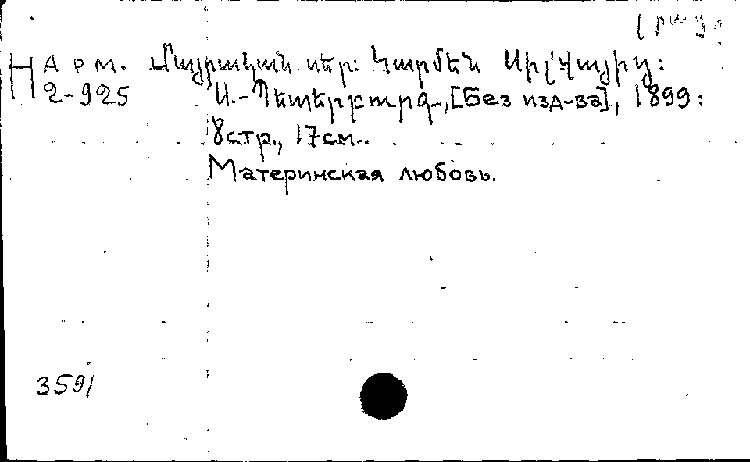 Н Арм. Մայրական սէր: Կարմեն Սիլվայից:
2-925 Ս.-Պետերբուրգ, [Без изд-ва], 1899:
8стр., 17см.
Материнская любовь.
3591